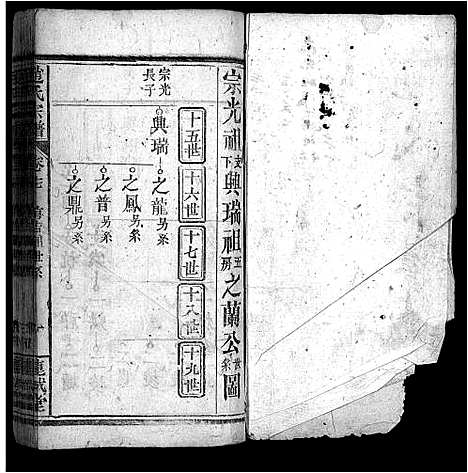 宗光祖支下興瑞祖五房之蘭公世系圖
十五世
十六世
十七世
十八世
十九世
宗光長子
興瑞
之龍另系
之鳳另系
之普另系
之鼎另系
氏宗譜